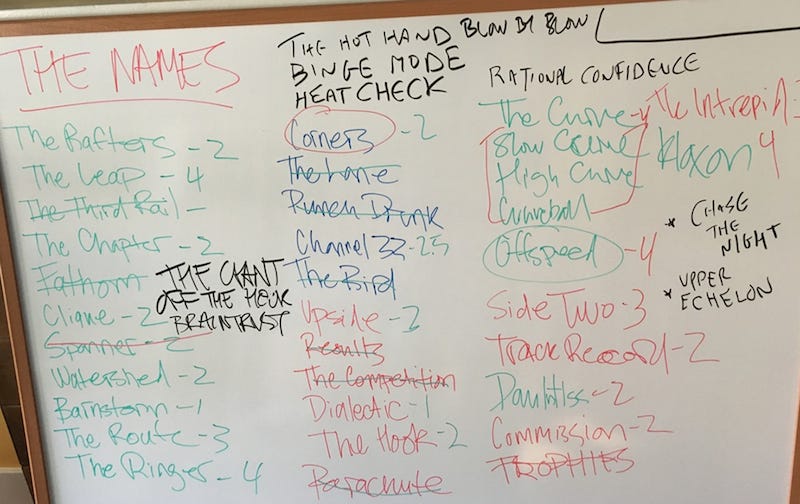 THE NAMES
The Rafters - 2
The Leap - 4
The Third Rail -
The Chapter - 2
Fathom
Clique - 2
Spanner - 2
Watershed - 2
Barnstorm - 1
The Route - 3
The Ringer - 4
THE CHANT
OFF THE HOOK
BRAINTRUST
THE HOT HAND
BINGE MODE
HEAT CHECK
BLOW BY BLOW
Corner 3 - 2
The Lane
Punch Drunk
Channel 32 - 2.5
The Bird
Upside - 2
Results
The Competition
Dialectic - 1
The Hook - 2
Parachute
RATIONAL CONFIDENCE
The Curve - 4
The Intrepid
Slow Curve
High Curve
Curveball
Klaxon 4
Offspeed - 4
Side Two - 3
Track Record - 2
Dauntless - 2
Commission - 2
TROPHIES
* CHASE
THE
NIGHT
* UPPER
ECHELON